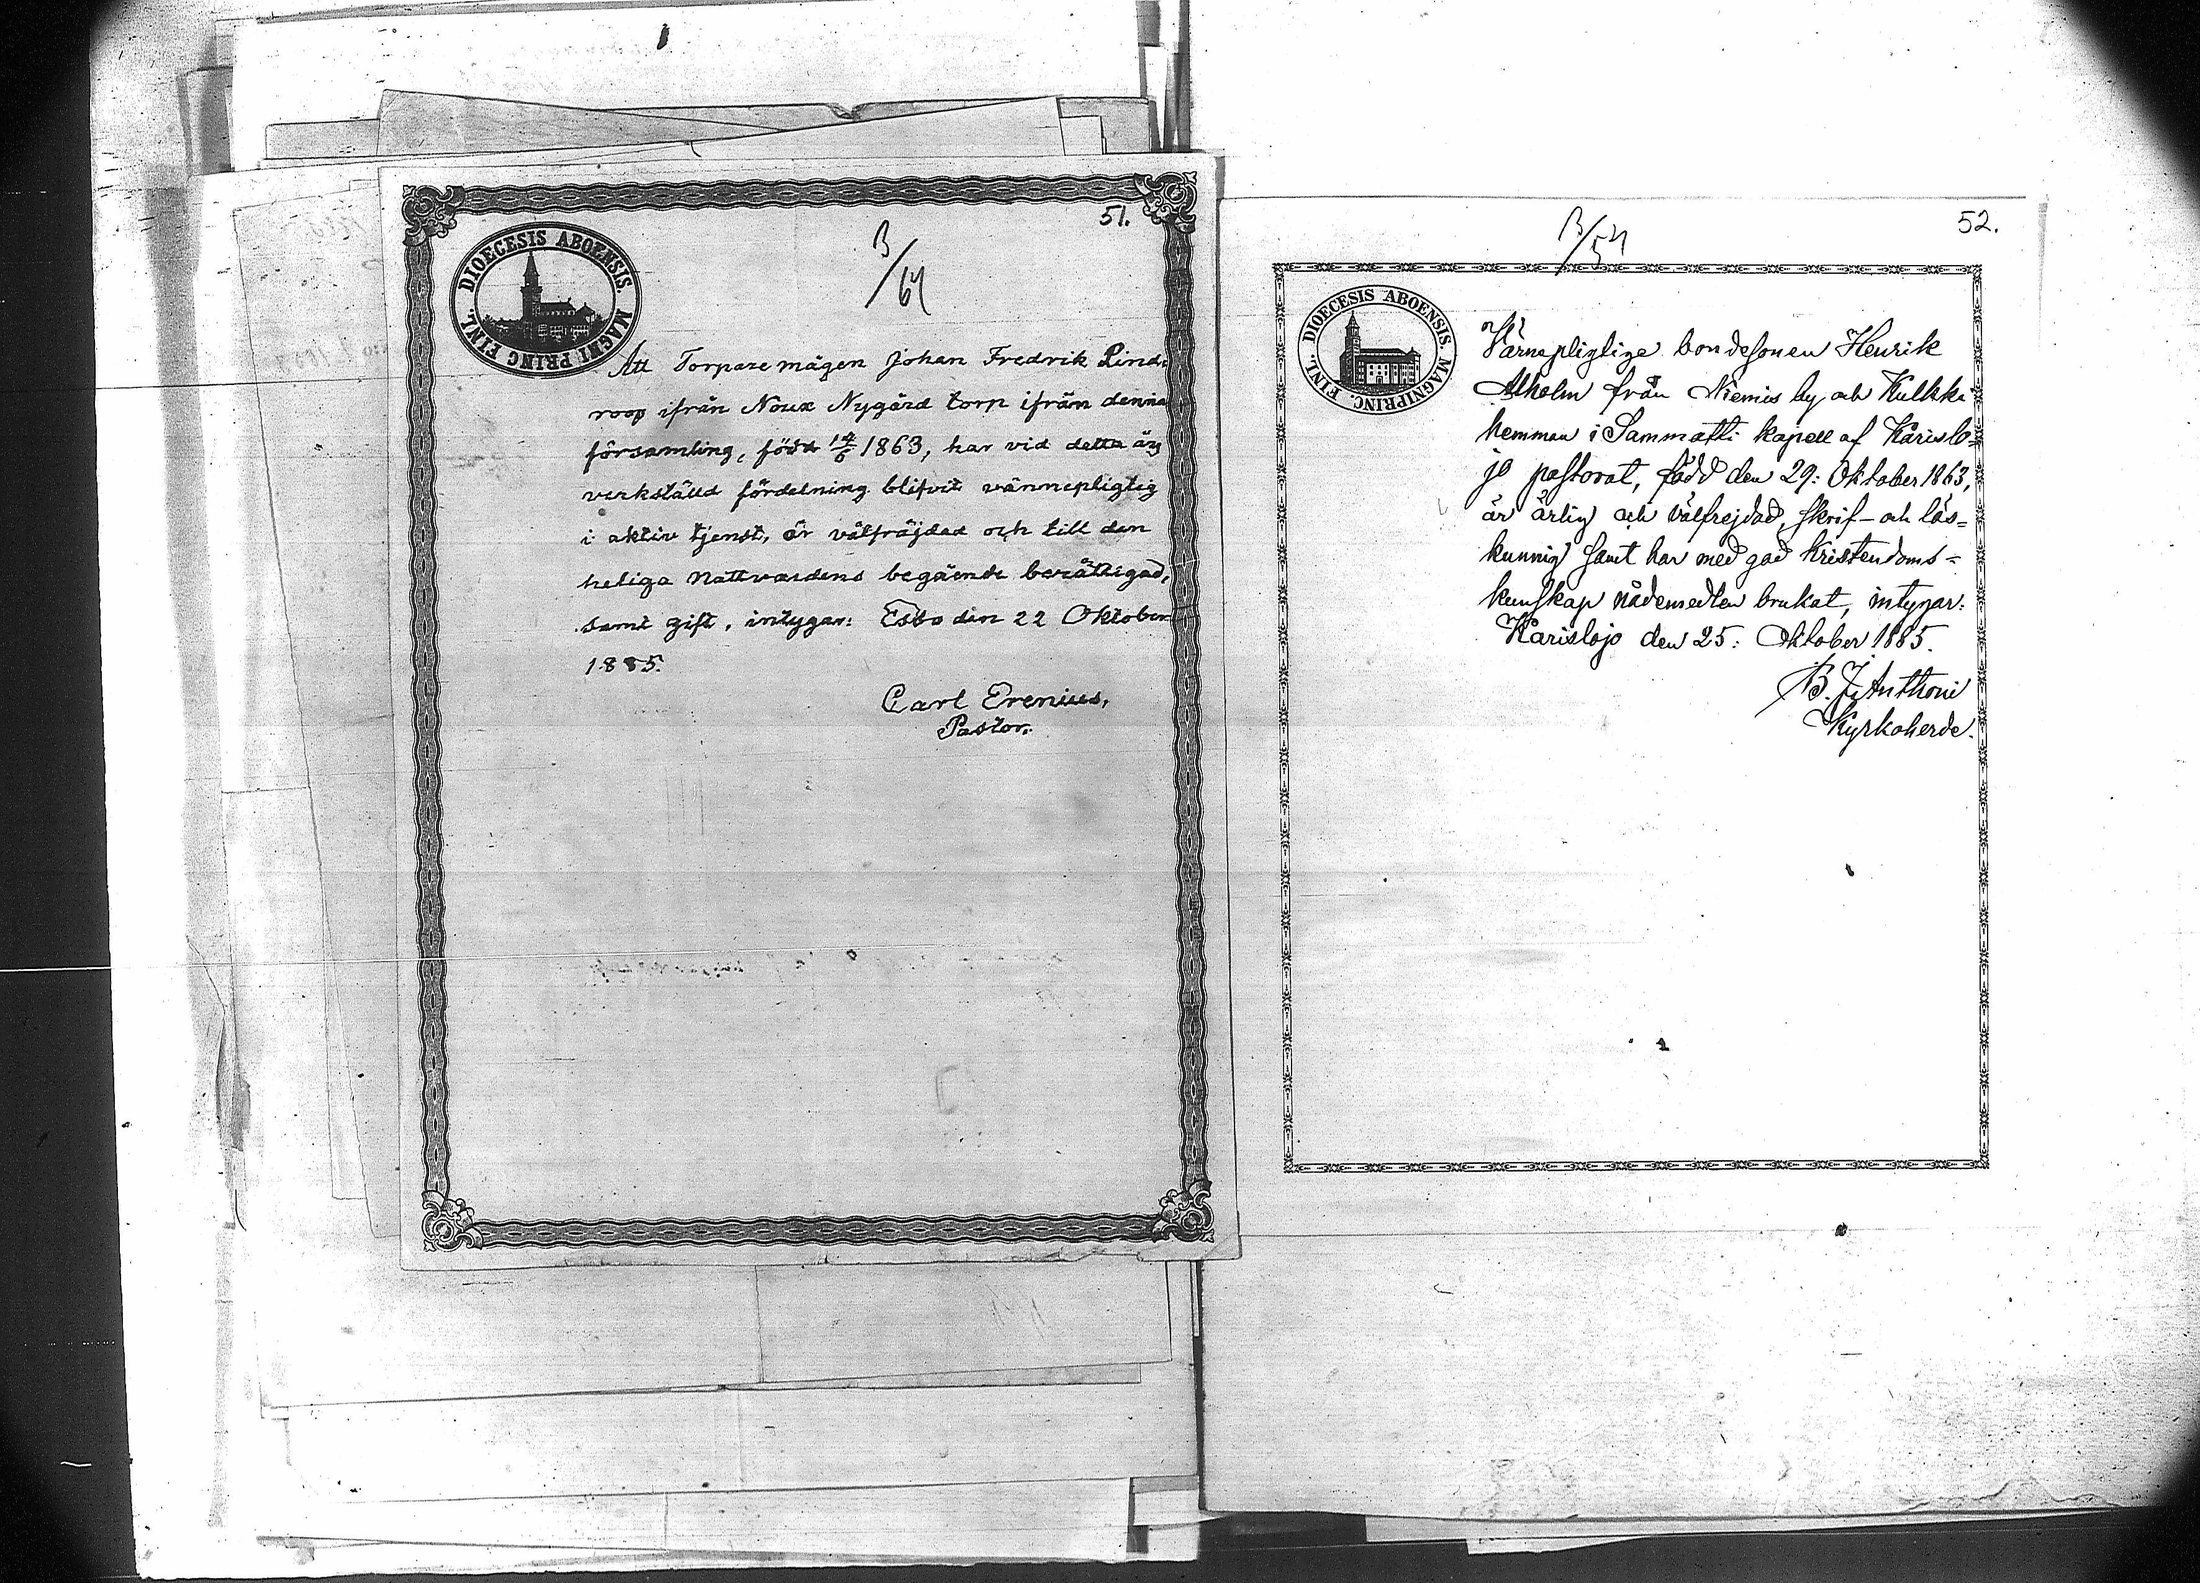 51.
B/64
DIOECESIS ABOENSIS. MAGNI PRINC FINL.
Att Torpare mågen Johan Fredrik Lind-
roos ifrån Noux Nygård torp ifrån denna
församling, född 14/6 1863, har vid detta år
verkstäld fördelning blifvit värnepligtig
i aktiv tjenst, är välfräjdad och till den
heliga Nattvardens begående berättigad,
samt gift, intygar: Esbo den 22 Oktober
1885.
Carl Erenius,
Pastor.
52.
B/54
DIOECESIS ABOENSIS. MAGNI PRINC. FINL.
Värnepligtige bondesonen Henrik
Alholm från Niemis by och Kulkki
hemman i Sammatti kapell af Karislo=
jo pastorat, född den 29: Oktober 1863,
är ärlig och välfrejdad, skrif- och läs=
kunnig samt har med god kristendoms=
kunskap nådemedlen brukat, intygar:
Karislojo den 25: Oktober 1885.
B. J. Anthoni
Kyrkoherde.